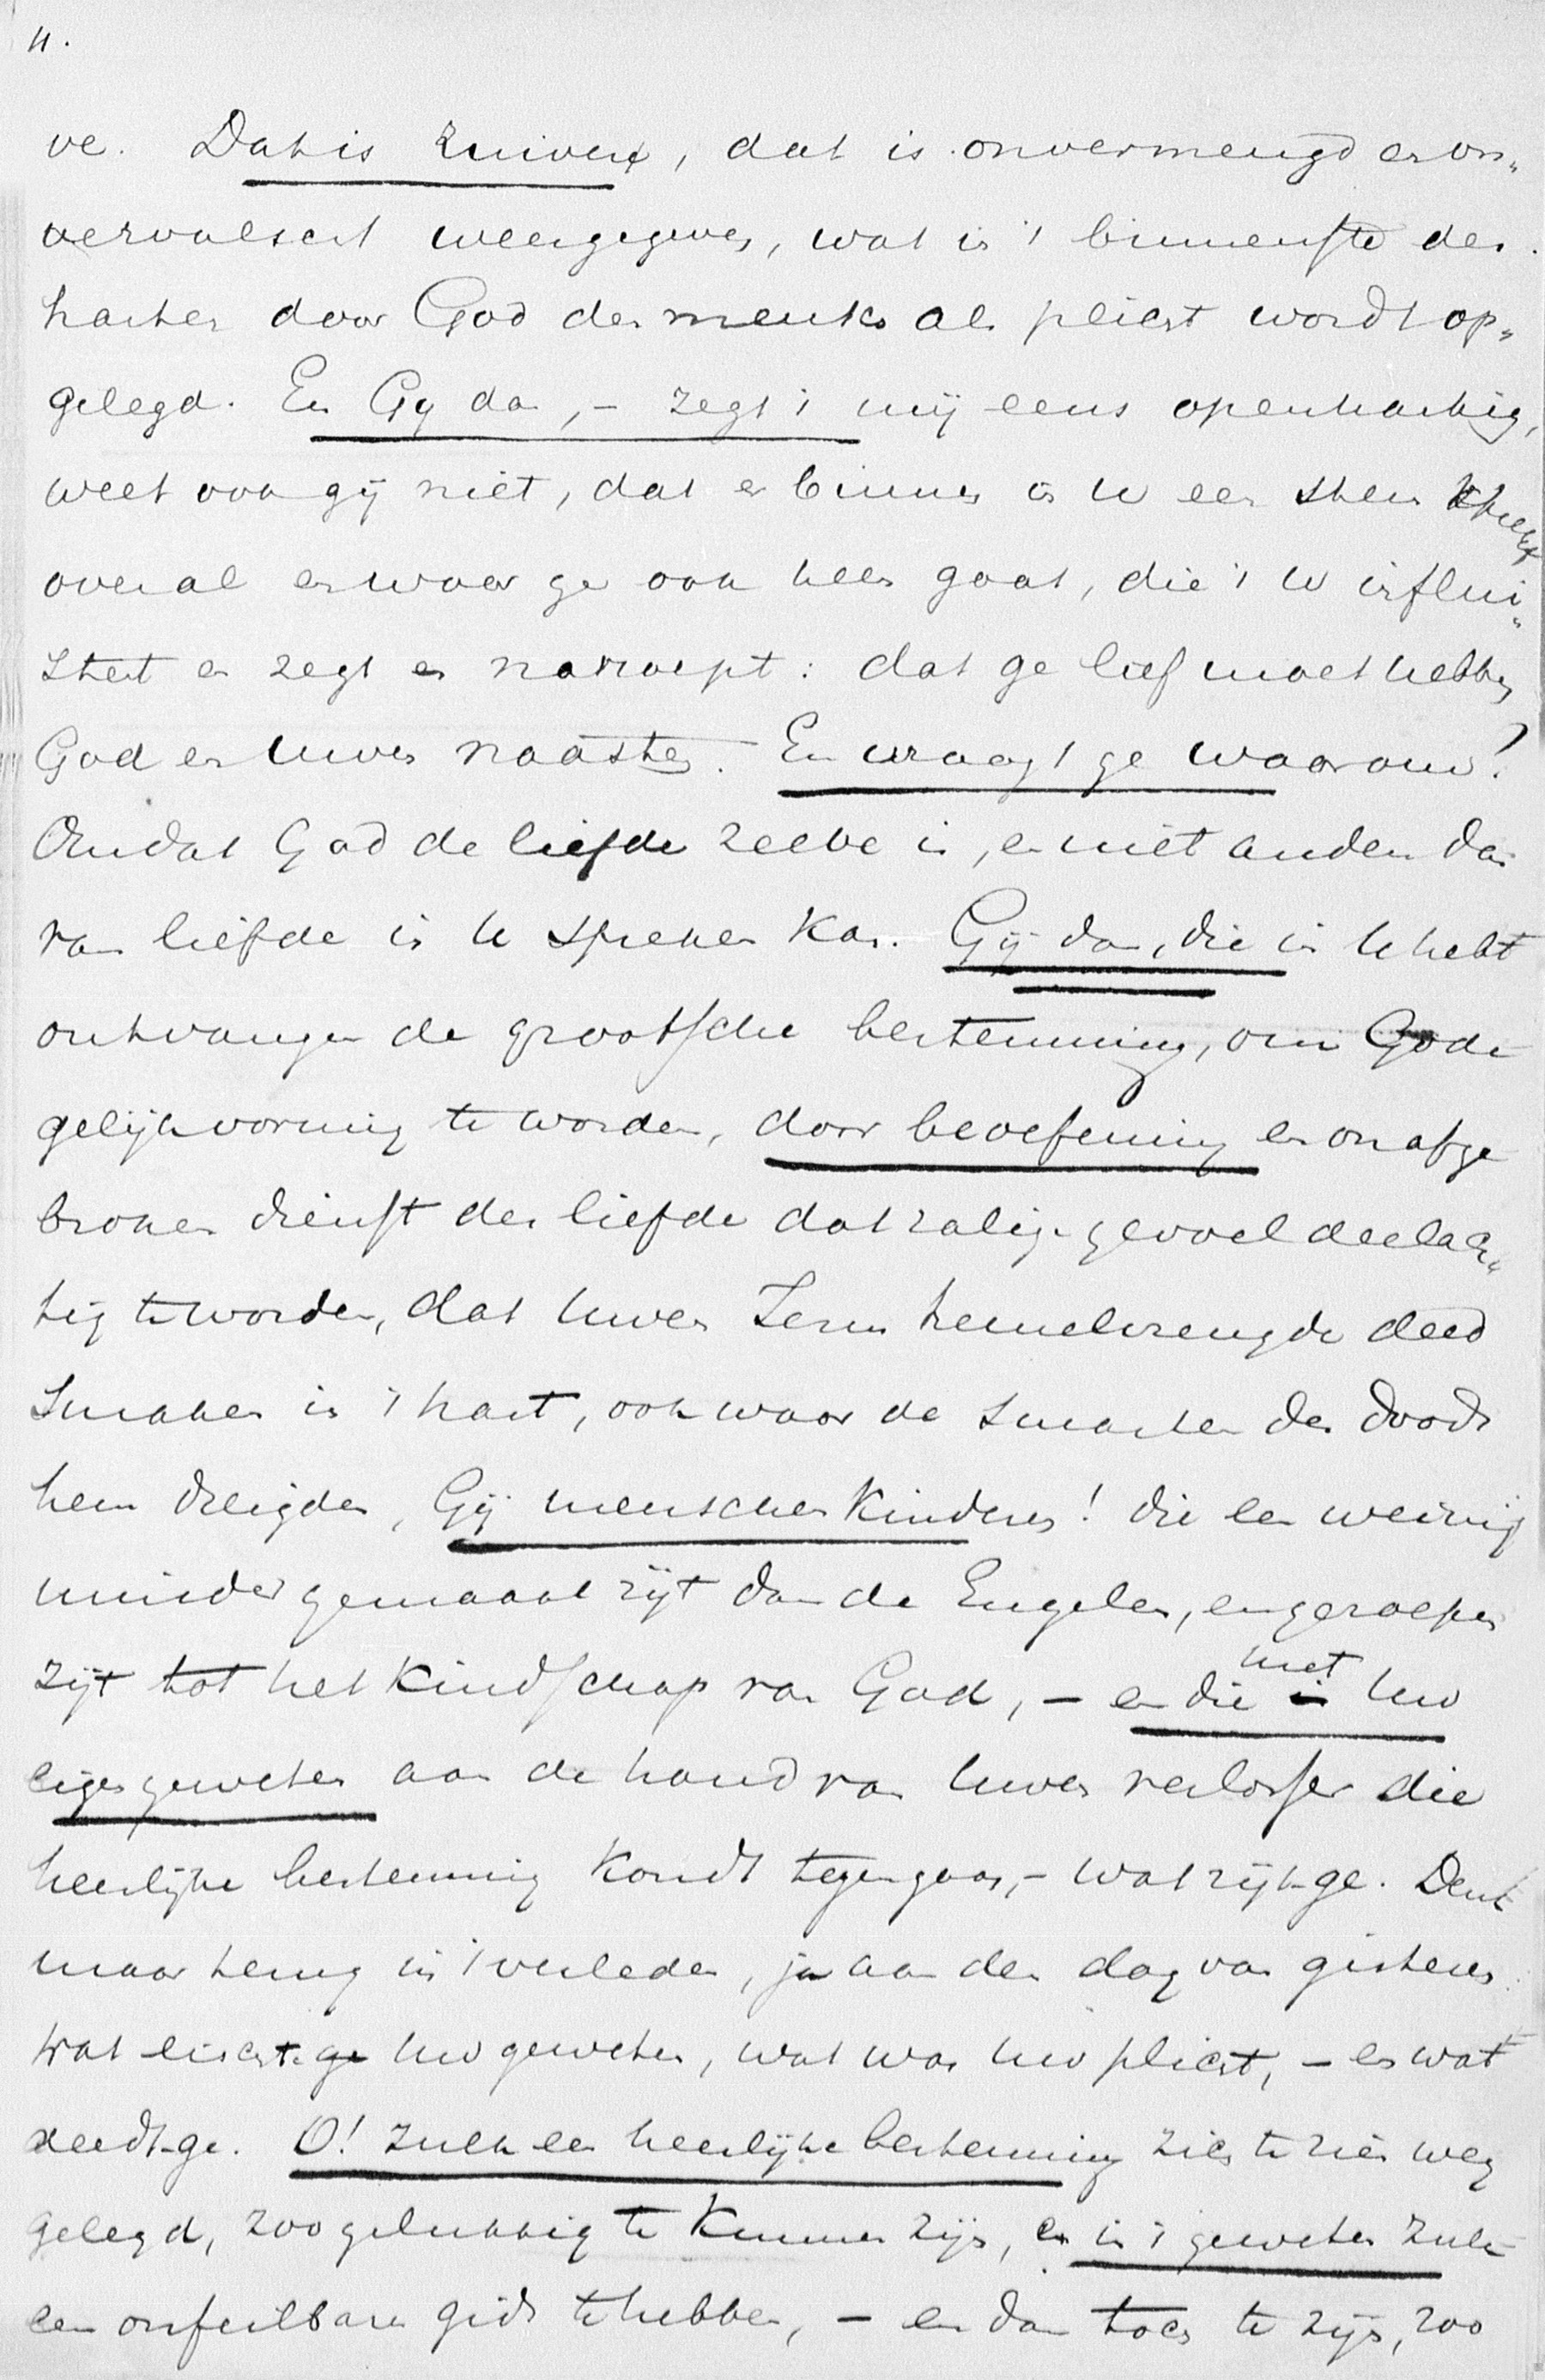 4.
ve. Dat is zuiver, dat is onvermengd en on„
vervalscht weergegeven, wat in 't binnenste des
harten door God den mensch als plicht wordt op„
gelegd. En Gy dan, – zegt 't mij eens openhartig,
weet ook gij niet, dat er binnen in U een stem spreekt
overal en waar ge ook heen gaat, die 't U influi„
stert en zegt en naroept: dat ge lief moet hebben
God en Uwen naasten. En vraagt ge waarom?
Omdat God de liefde zelve is, en niet anders dan
van liefde in U spreken kan. Gij dan, die in U hebt
ontvangen de grootsche bestemming, om Gode
gelijkvormig te worden, door beoefening en onafge
broken dienst der liefde dat zalige gevoel deelach„
tig te worden, dat Uwen Jezus hemelvreugde deed
smaken in 't hart, ook waar de smarten des doods
hem dreigden, Gij menschen Kinderen! die een weinig
minder gemaakt zijt dan de Engelen, en geroepen
zijt tot het Kindschap van God, – en die met Uw
eigen geweten aan de hand van Uwen verlosser die
heerlijke bestemming Kondt tegengaan, – wat zijt-ge. Denk
maar terug in 't verleden, ja aan den dag van gisteren.
Wat eischte Uw geweten, wat was Uw plicht, – en wat
deedt-ge. O! zulk een heerlijke bestemming zich te zien weg
gelegd, zoo gelukkig te Kunnen zijn, en in 't geweten zulk
een onfeilbaren gids te hebben, – en dan toch te zijn, zoo